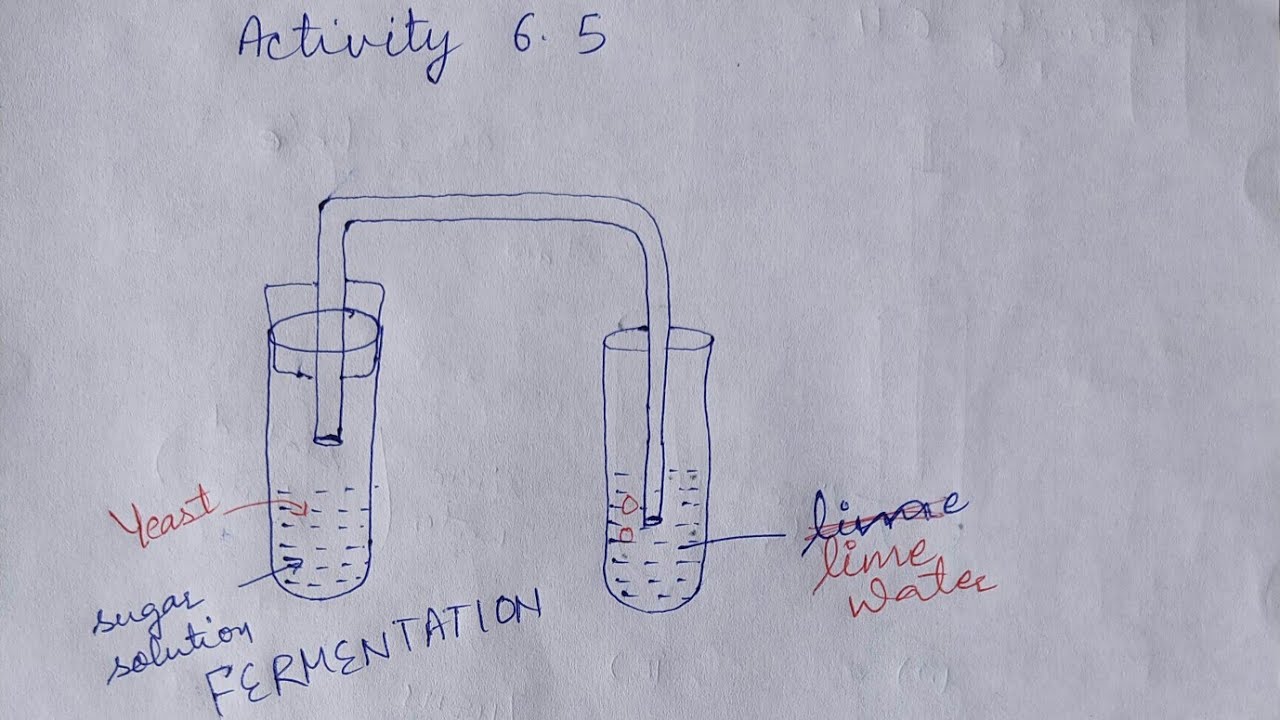 Activity 6.5
Yeast
lime
lime
water
sugar
solution
FERMENTATION